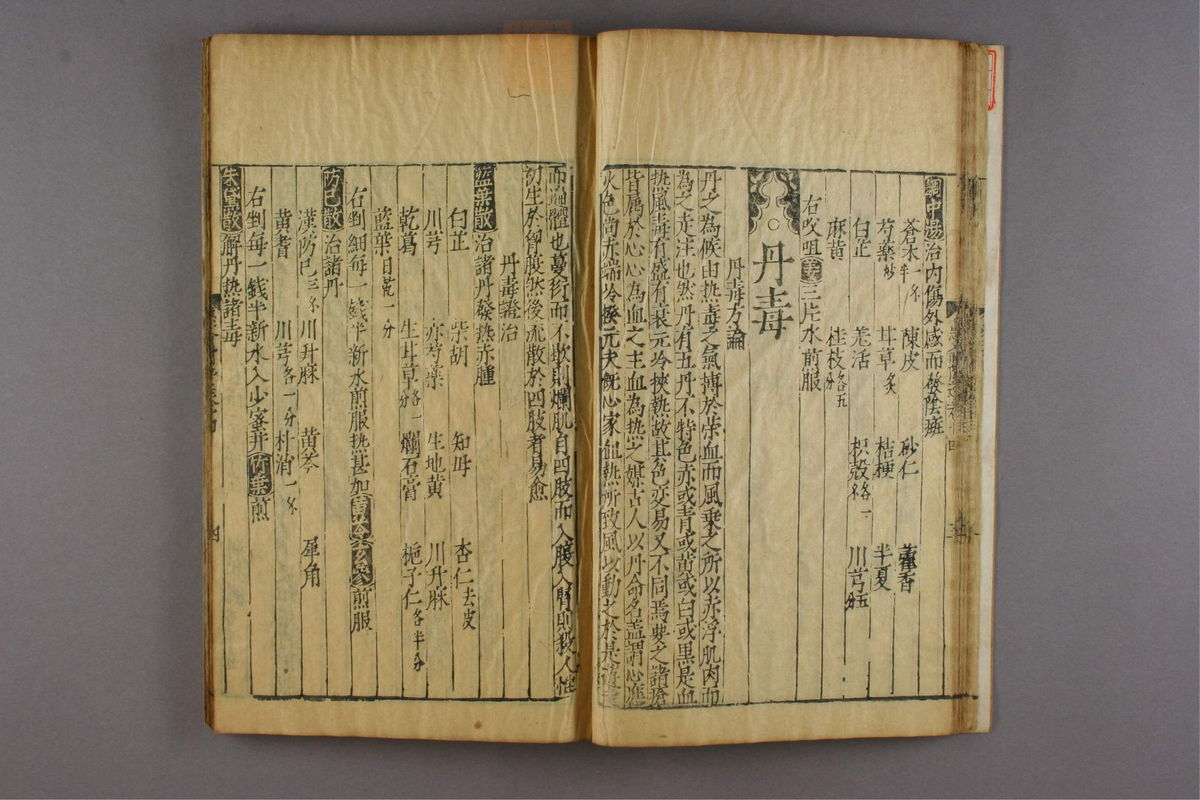 調中湯治内傷外感而發陰斑
蒼术一半 陳皮 砂仁 藿香
芍藥炒 甘草炙 桔梗 半夏
白芷 羌活 枳殻各一 川芎五分
麻黄 桂枝各五
右㕮咀姜三片水煎服
丹毒
丹毒方論
丹之為候由热毒之氣搏於荣血而風乗之所以赤浮肌肉而
為之走注也然丹有五丹不特色赤或青或黄或白或黒是血
热風毒有盛有衰元冷挾熱故其色变易又不同焉要之諸瘡
皆属於心心為血之主血為热之媒古人以丹命名盖謂心應
火色尚赤端冷發元夫既心家血熱所致風以動之於是
而遍體也蔓衍而不歇則爛肌自四肢而入腹入腎則殺人惟
初生於胷腹然後流散於四肢者易愈
丹毒證治
藍葉散治諸丹發热赤腫
白芷 柴胡 知母 杏仁去皮
川芎 赤芍藥 生地黄 川升麻
乾葛 生甘草各一分 爛石膏 梔子仁各半分
藍葉日乾一分
右剉細每一錢半新水煎服热甚加黄芩玄參煎服
防己散治諸丹
漢防己三 川升麻 黄芩 犀角
黄耆 川芎各一分 朴消一
右剉每一錢半新水入少蜜并竹葉煎
朱砂散解丹热諸毒